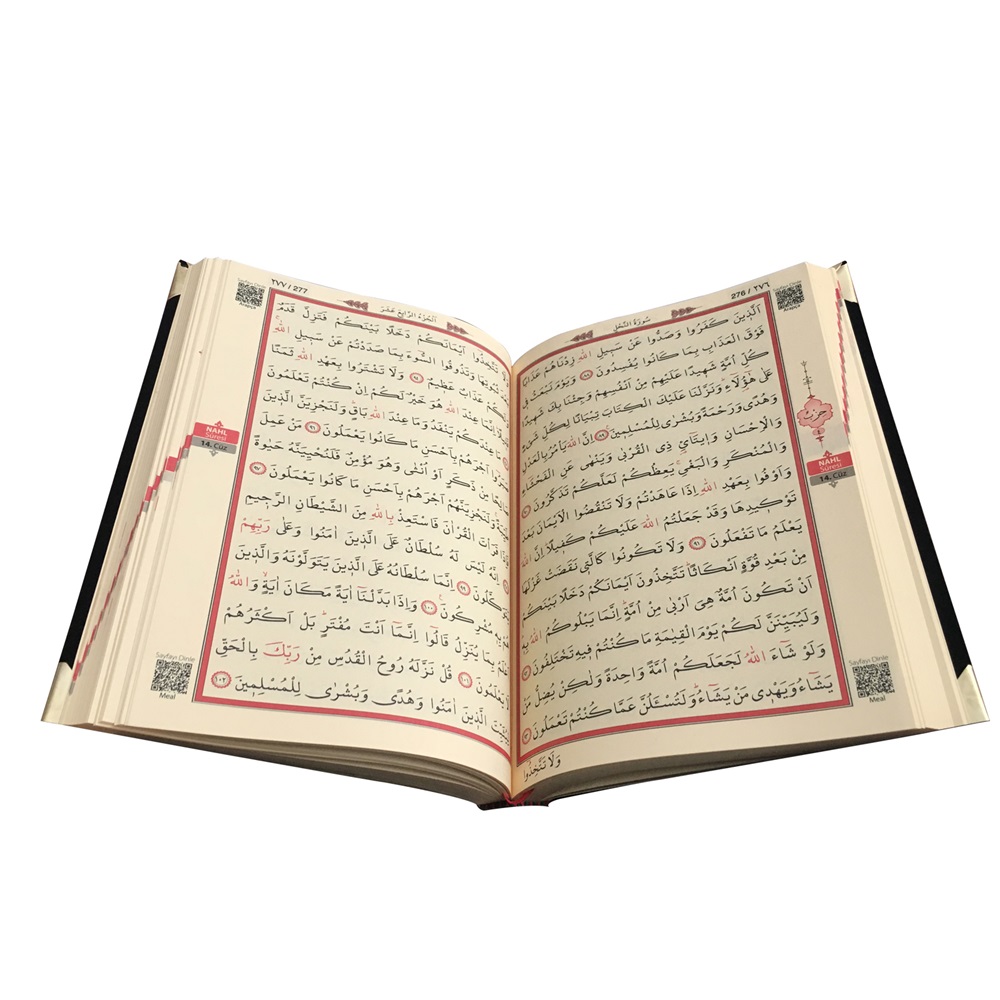 276 / ٢٧٦
سُورَةُ النَّحْلِ
Arapça
اَلَّذِينَ كَفَرُوا وَصَدُّوا عَنْ سَبِيلِ اللّٰهِ زِدْنَاهُمْ عَذَابًا
فَوْقَ الْعَذَابِ بِمَا كَانُوا يُفْسِدُونَ ٨٨ وَيَوْمَ نَبْعَثُ فِي
كُلِّ اُمَّةٍ شَهِيدًا عَلَيْهِمْ مِنْ اَنْفُسِهِمْ وَجِئْنَا بِكَ شَهِيدًا
عَلٰى هٰٓؤُلَٓاءِ وَنَزَّلْنَا عَلَيْكَ الْكِتَابَ تِبْيَانًا لِكُلِّ شَيْءٍ
وَهُدًى وَرَحْمَةً وَبُشْرٰى لِلْمُسْلِمِينَ ٨٩ اِنَّ اللّٰهَ يَأْمُرُ بِالْعَدْلِ
وَالْاِحْسَانِ وَاِيتَٓائِ ذِي الْقُرْبٰى وَيَنْهٰى عَنِ الْفَحْشَٓاءِ
وَالْمُنْكَرِ وَالْبَغْيِ يَعِظُكُمْ لَعَلَّكُمْ تَذَكَّرُونَ ٩٠
وَاَوْفُوا بِعَهْدِ اللّٰهِ اِذَا عَاهَدْتُمْ وَلَا تَنْقُضُوا الْاَيْمَانَ بَعْدَ
تَوْكِيدِهَا وَقَدْ جَعَلْتُمُ اللّٰهَ عَلَيْكُمْ كَفِيلًا اِنَّ اللّٰهَ
يَعْلَمُ مَا تَفْعَلُونَ ٩١ وَلَا تَكُونُوا كَالَّتِي نَقَضَتْ غَزْلَهَا
مِنْ بَعْدِ قُوَّةٍ اَنْكَاثًا تَتَّخِذُونَ اَيْمَانَكُمْ دَخَلًا بَيْنَكُمْ
اَنْ تَكُونَ اُمَّةٌ هِيَ اَرْبٰى مِنْ اُمَّةٍ اِنَّمَا يَبْلُوكُمُ اللّٰهُ بِهِ
وَلَيُبَيِّنَنَّ لَكُمْ يَوْمَ الْقِيٰمَةِ مَا كُنْتُمْ فِيهِ تَخْتَلِفُونَ ٩٢
وَلَوْ شَٓاءَ اللّٰهُ لَجَعَلَكُمْ اُمَّةً وَاحِدَةً وَلٰكِنْ يُضِلُّ مَنْ
يَشَٓاءُ وَيَهْدِي مَنْ يَشَٓاءُ وَلَتُسْـَٔلُنَّ عَمَّا كُنْتُمْ تَعْمَلُونَ ٩٣
وَلَا تَتَّخِذُٓوا
حزب
٤
NAHL
Sûresi
14. Cüz
Sayfayı Dinle
Meal
٢٧٧ / 277
اَلْجُزْءُ الرَّابِعُ عَشَرَ
Arapça
تَتَّخِذُٓوا اَيْمَانَكُمْ دَخَلًا بَيْنَكُمْ فَتَزِلَّ قَدَمٌ
ثُبُوتِهَا وَتَذُوقُوا السُّٓوءَ بِمَا صَدَدْتُمْ عَنْ سَبِيلِ اللّٰهِ
عَذَابٌ عَظِيمٌ ٩٤ وَلَا تَشْتَرُوا بِعَهْدِ اللّٰهِ ثَمَنًا
اِنَّمَا عِنْدَ اللّٰهِ هُوَ خَيْرٌ لَكُمْ اِنْ كُنْتُمْ تَعْلَمُونَ
عِنْدَكُمْ يَنْفَدُ وَمَا عِنْدَ اللّٰهِ بَاقٍ وَلَنَجْزِيَنَّ الَّذِينَ
اَجْرَهُمْ بِاَحْسَنِ مَا كَانُوا يَعْمَلُونَ ٩٦ مَنْ عَمِلَ
مِنْ ذَكَرٍ اَوْ اُنْثٰى وَهُوَ مُؤْمِنٌ فَلَنُحْيِيَنَّهُ حَيٰوةً
وَلَنَجْزِيَنَّهُمْ اَجْرَهُمْ بِاَحْسَنِ مَا كَانُوا يَعْمَلُونَ ٩٧
قَرَأْتَ الْقُرْاٰنَ فَاسْتَعِذْ بِاللّٰهِ مِنَ الشَّيْطَانِ الرَّجِيمِ
اِنَّهُ لَيْسَ لَهُ سُلْطَانٌ عَلَى الَّذِينَ اٰمَنُوا وَعَلٰى رَبِّهِمْ
٩٩ اِنَّمَا سُلْطَانُهُ عَلَى الَّذِينَ يَتَوَلَّوْنَهُ وَالَّذِينَ
مُشْرِكُونَ ١٠٠ وَاِذَا بَدَّلْنَٓا اٰيَةً مَكَانَ اٰيَةٍ وَاللّٰهُ
بِمَا يُنَزِّلُ قَالُٓوا اِنَّمَٓا اَنْتَ مُفْتَرٍ بَلْ اَكْثَرُهُمْ
يَعْلَمُونَ ١٠١ قُلْ نَزَّلَهُ رُوحُ الْقُدُسِ مِنْ رَبِّكَ بِالْحَقِّ
الَّذِينَ اٰمَنُوا وَهُدًى وَبُشْرٰى لِلْمُسْلِمِينَ ١٠٢
NAHL
Sûresi
14. Cüz
Sayfayı Dinle
Meal